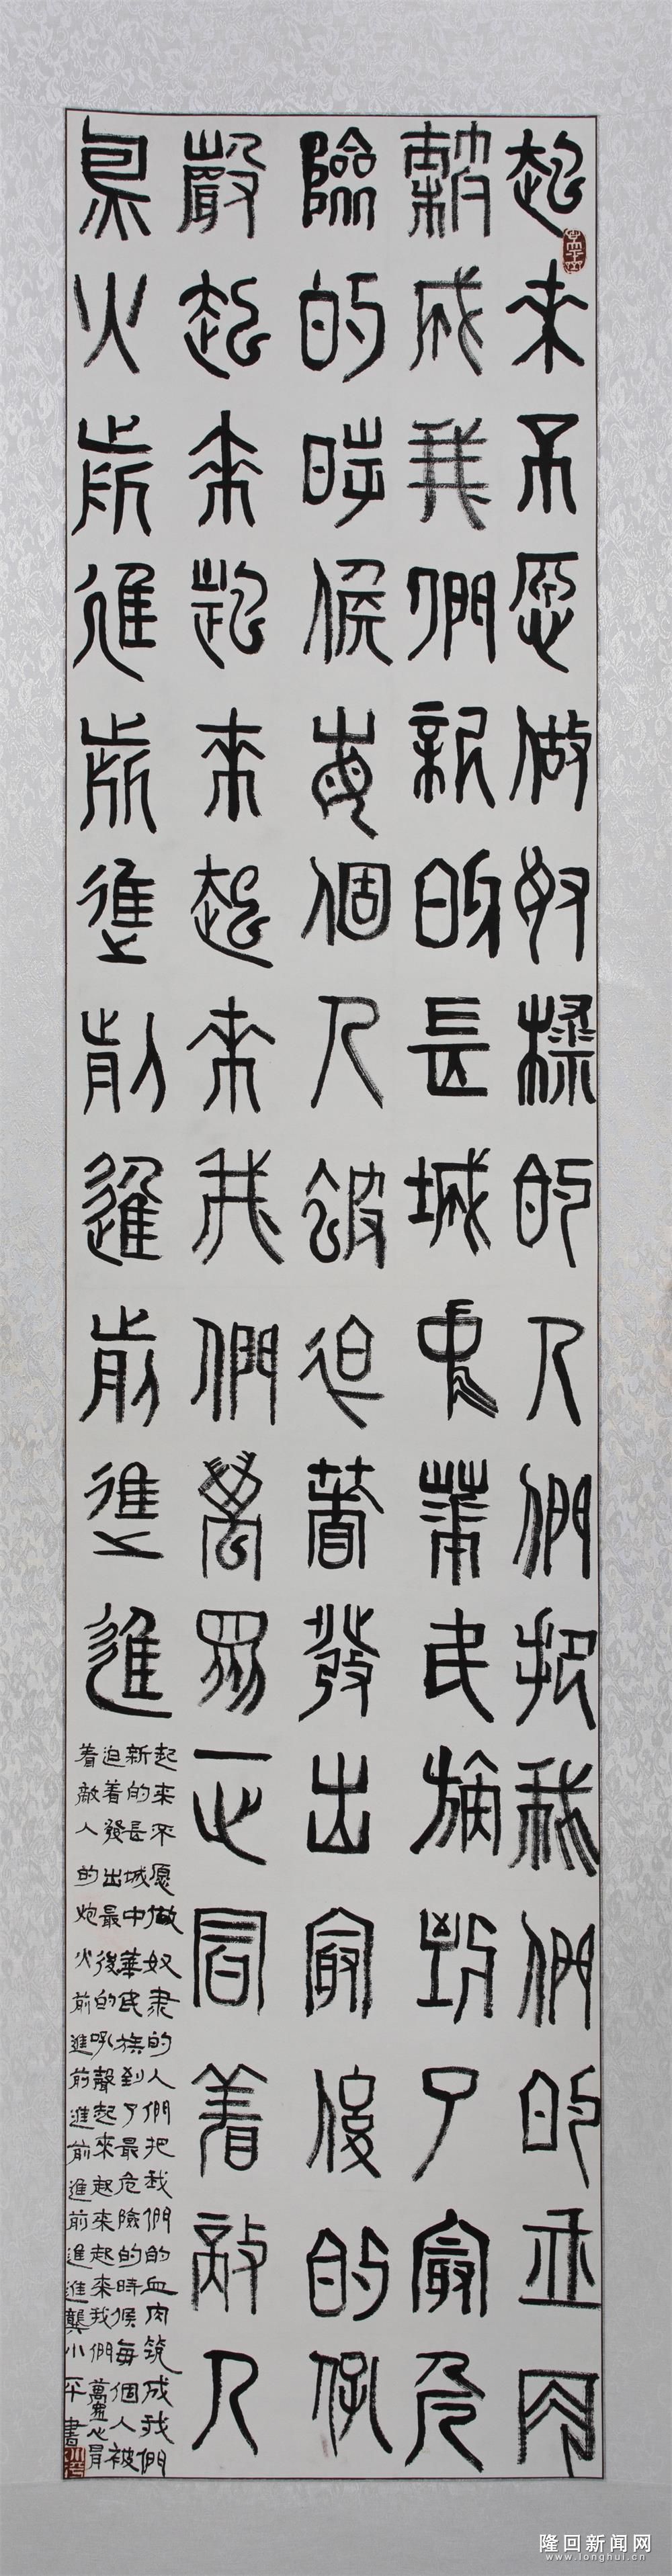 起來不愿做奴隸的人們把我們的血肉
築成我們新的長城中華民族到了最危
險的時候每個人被迫著發出最後的吼
聲起來起來起來我們萬眾一心冒着敵人
炮火前進前進前進前進進
起来不愿做奴隶的人們把我們的血肉筑成我們
新的長城中華民族到了最危險的時候每個人被
迫着發出最後的吼聲起來起來起來我們萬眾一心冒
着敵人的炮火前進前進前進前進進龔小平書
隆回新闻网
www.longhui.cn